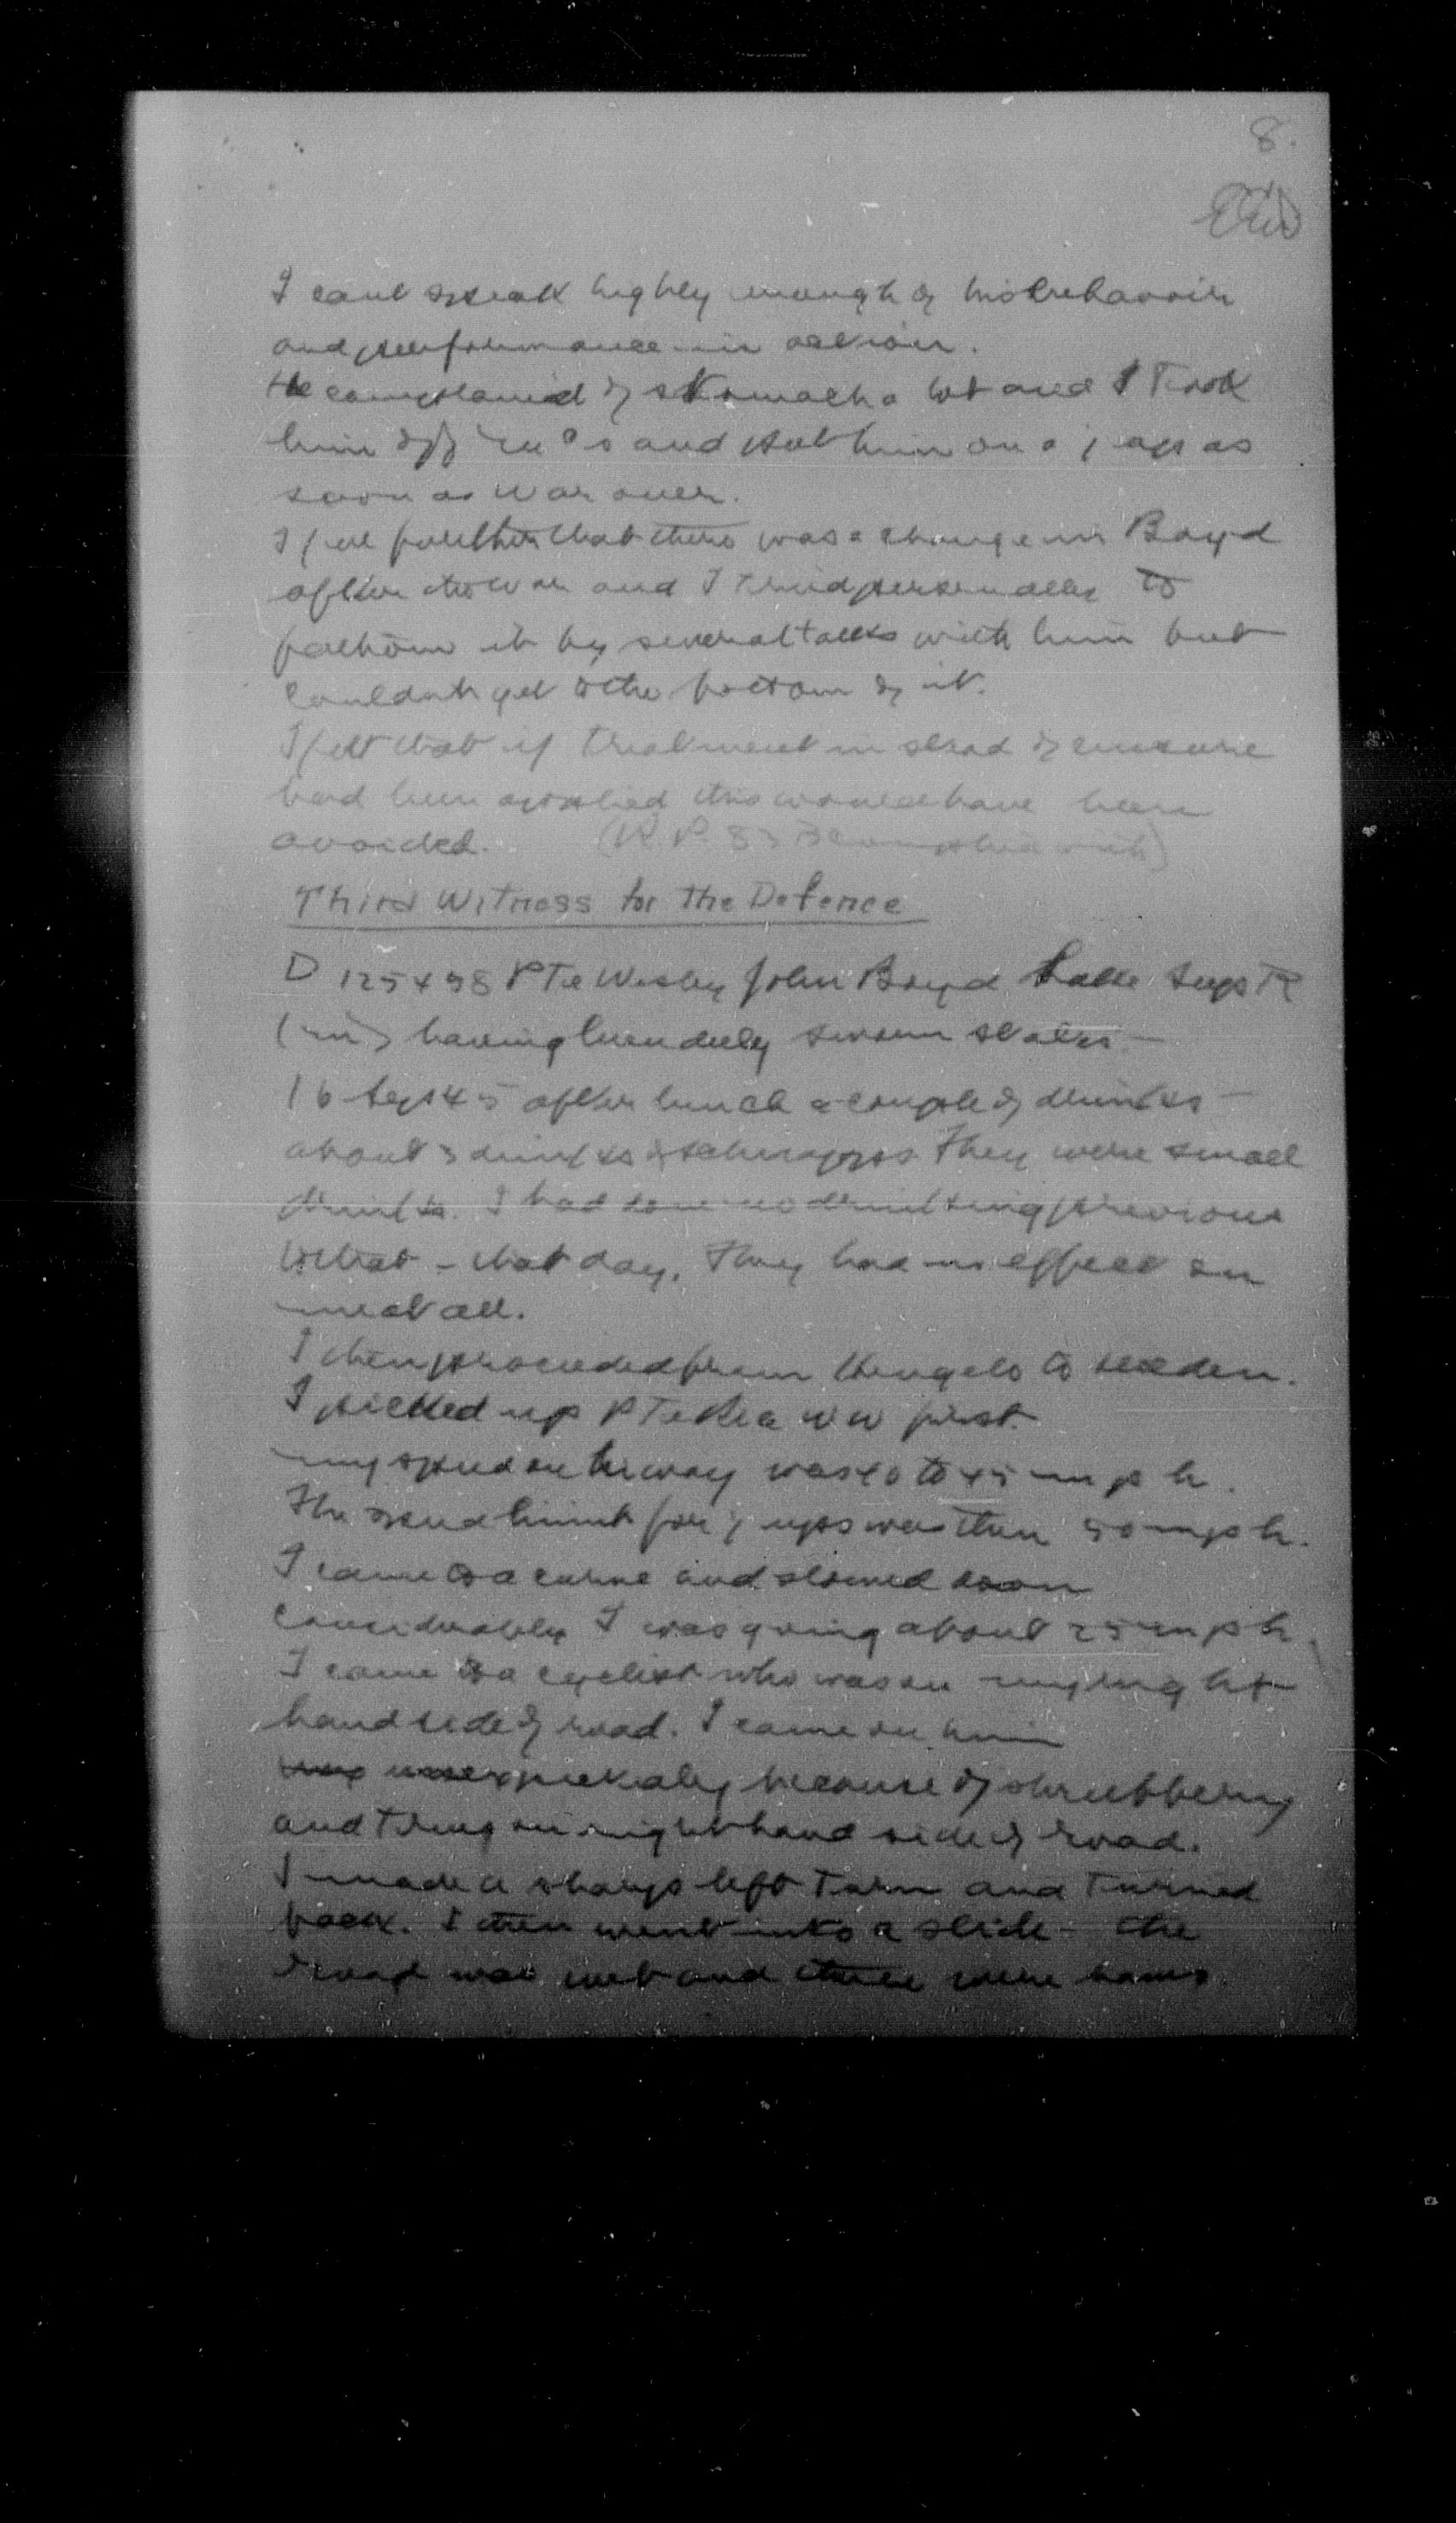 8.
I cant speak highly enough of his behavoir
and performance in action.
He complained of stomach a lot and I took
him off and put him on a jeep as
soon as war over.
I felt further that there was a change in Boyd
after the war and I tried personally to
fathom it by several talks with him but
couldnt get to the bottom of it.
I felt that if treatment in stead of
had been applied this would have been
avoided. (R P 83 B complied with)
Third Witness for The Defence
D 125498 Pte Wesley John Boyd Lake Sup R
(m) having been duly sworn states -
16 Sep 45 after lunch a couple of drinks -
about 3 drinks of schnapps They were small
drinks. I had done no drinking previous
to that - that day. They had no effect on
me at all.
I then proceeded from Hengelo to
I picked up Pte Rea W W first.
my speed on hiway was 40 to 45 m p h.
The speed limit for jeeps was then 50 mph.
I came to a curve and slowed down
considerably I was going about 25 m p h.
I came to a cyclist who was on my right
hand side of road. I came on him
unexpectedly because of shrubbery
and trees on right hand side of road.
I made a sharp left turn and turned
back. I then went into a slide - the
road was wet and there were